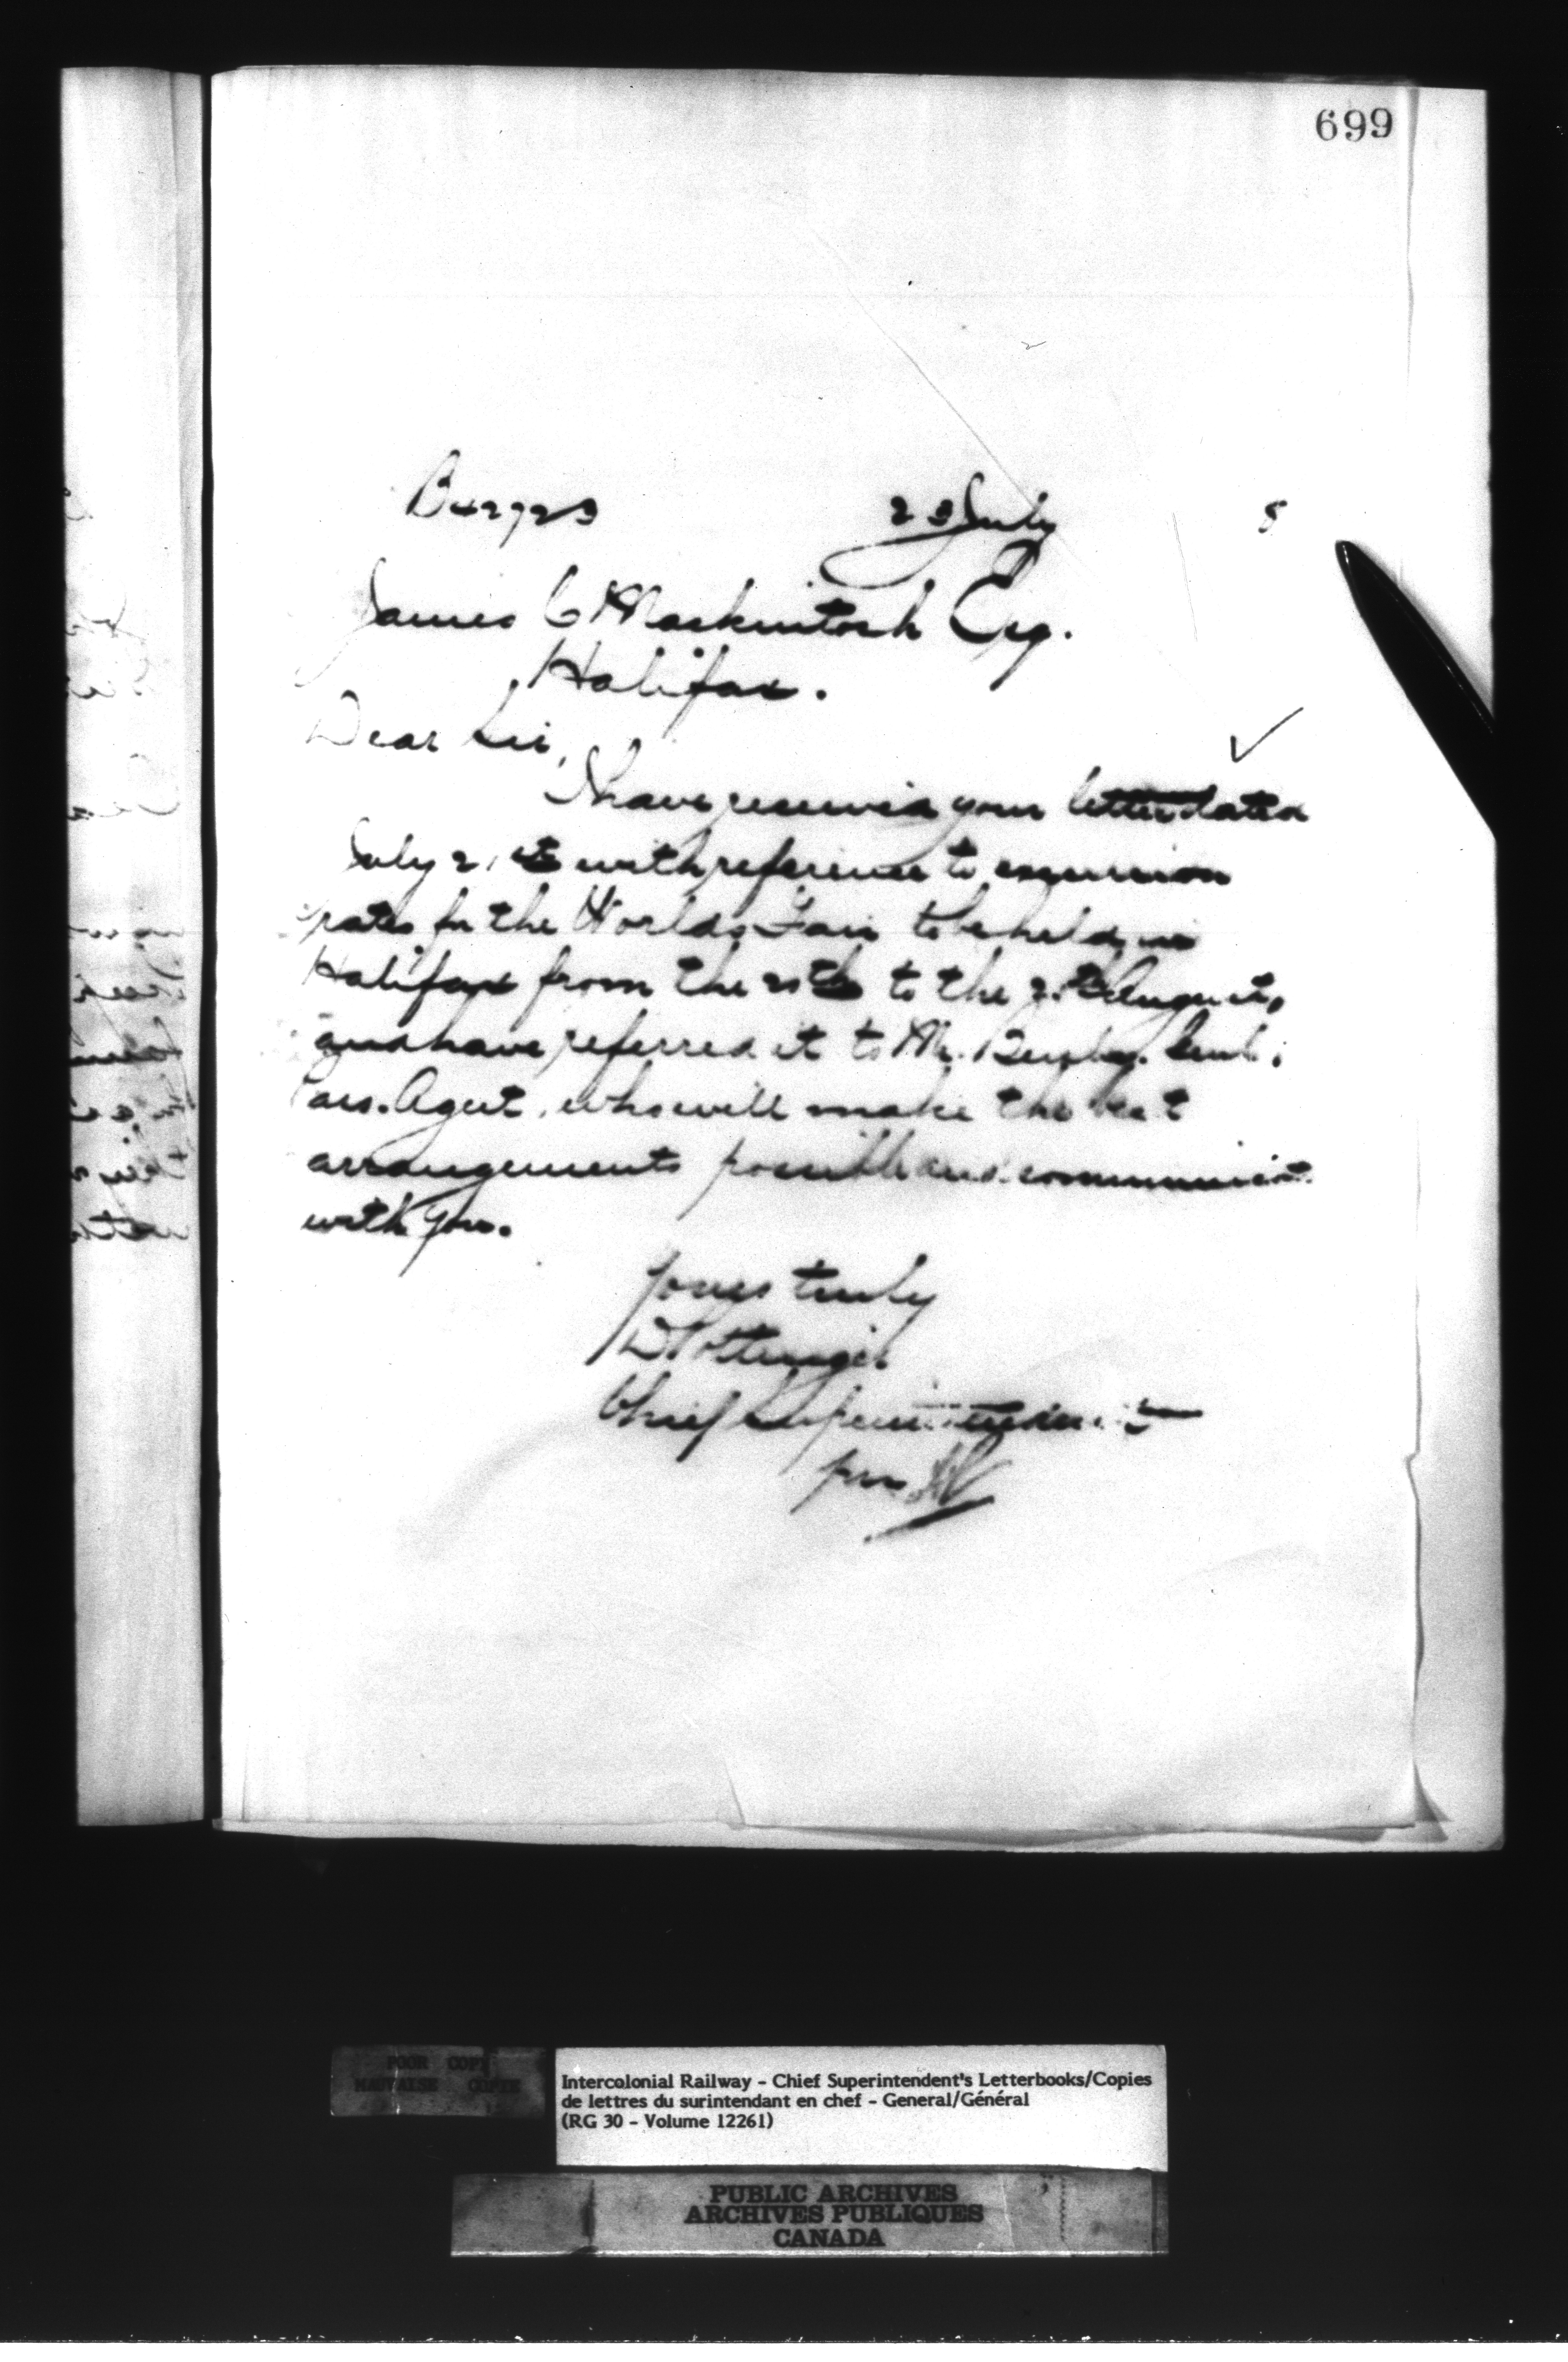 699
B42723 23 July 5
James C Mackintosh Esq.
Halifax.
Dear Sir,
I have received your letter dated
July 21st with reference to excursion
rates for the Worlds Fair to be held in
Halifax from the 20th to the August,
and have referred it to Mr. Busby. Genl.
Pas. Agent, who will make the best
arrangements possible and communicate
with you.
Yours truly
D Pottinger
Chief Superintendent
per
POOR COPY
MAUVAISE COPIE
Intercolonial Railway - Chief Superintendent's Letterbooks/Copies
de lettres du surintendant en chef - General/Général
(RG 30 - Volume 12261)
PUBLIC ARCHIVES
ARCHIVES PUBLIQUES
CANADA